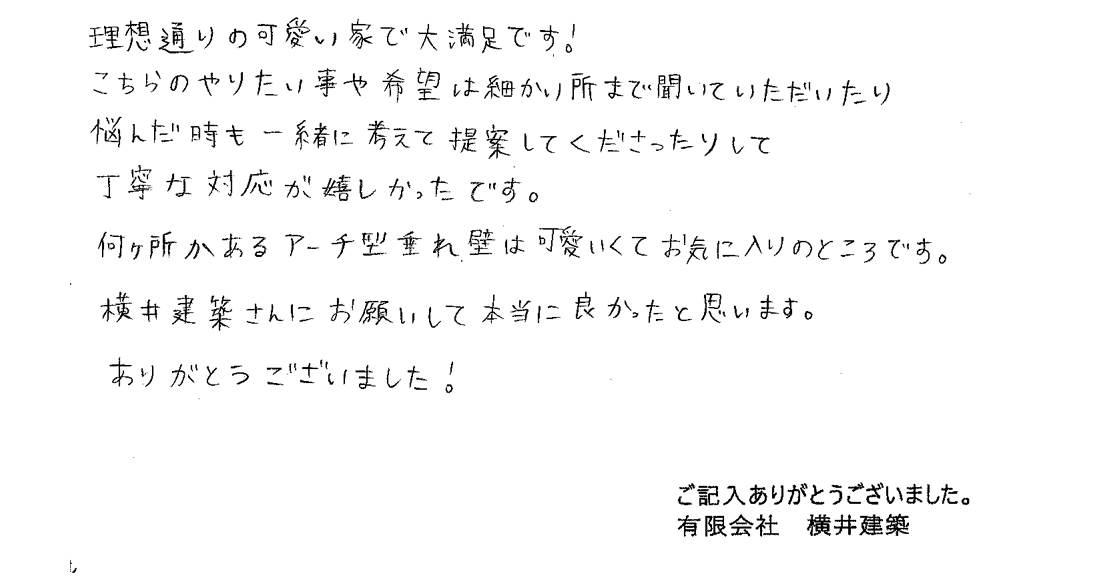 理想通りの可愛い家で大満足です!
こちらのやりたい事や希望は細かい所まで聞いていただいたり
悩んだ時も一緒に考えて提案してくださったりして
丁寧な対応が嬉しかったです。
何ヶ所かあるアーチ型垂れ壁は可愛いくてお気に入りのところです。
横井建築さんにお願いして本当に良かったと思います。
ありがとうございました!
ご記入ありがとうございました。
有限会社 横井建築